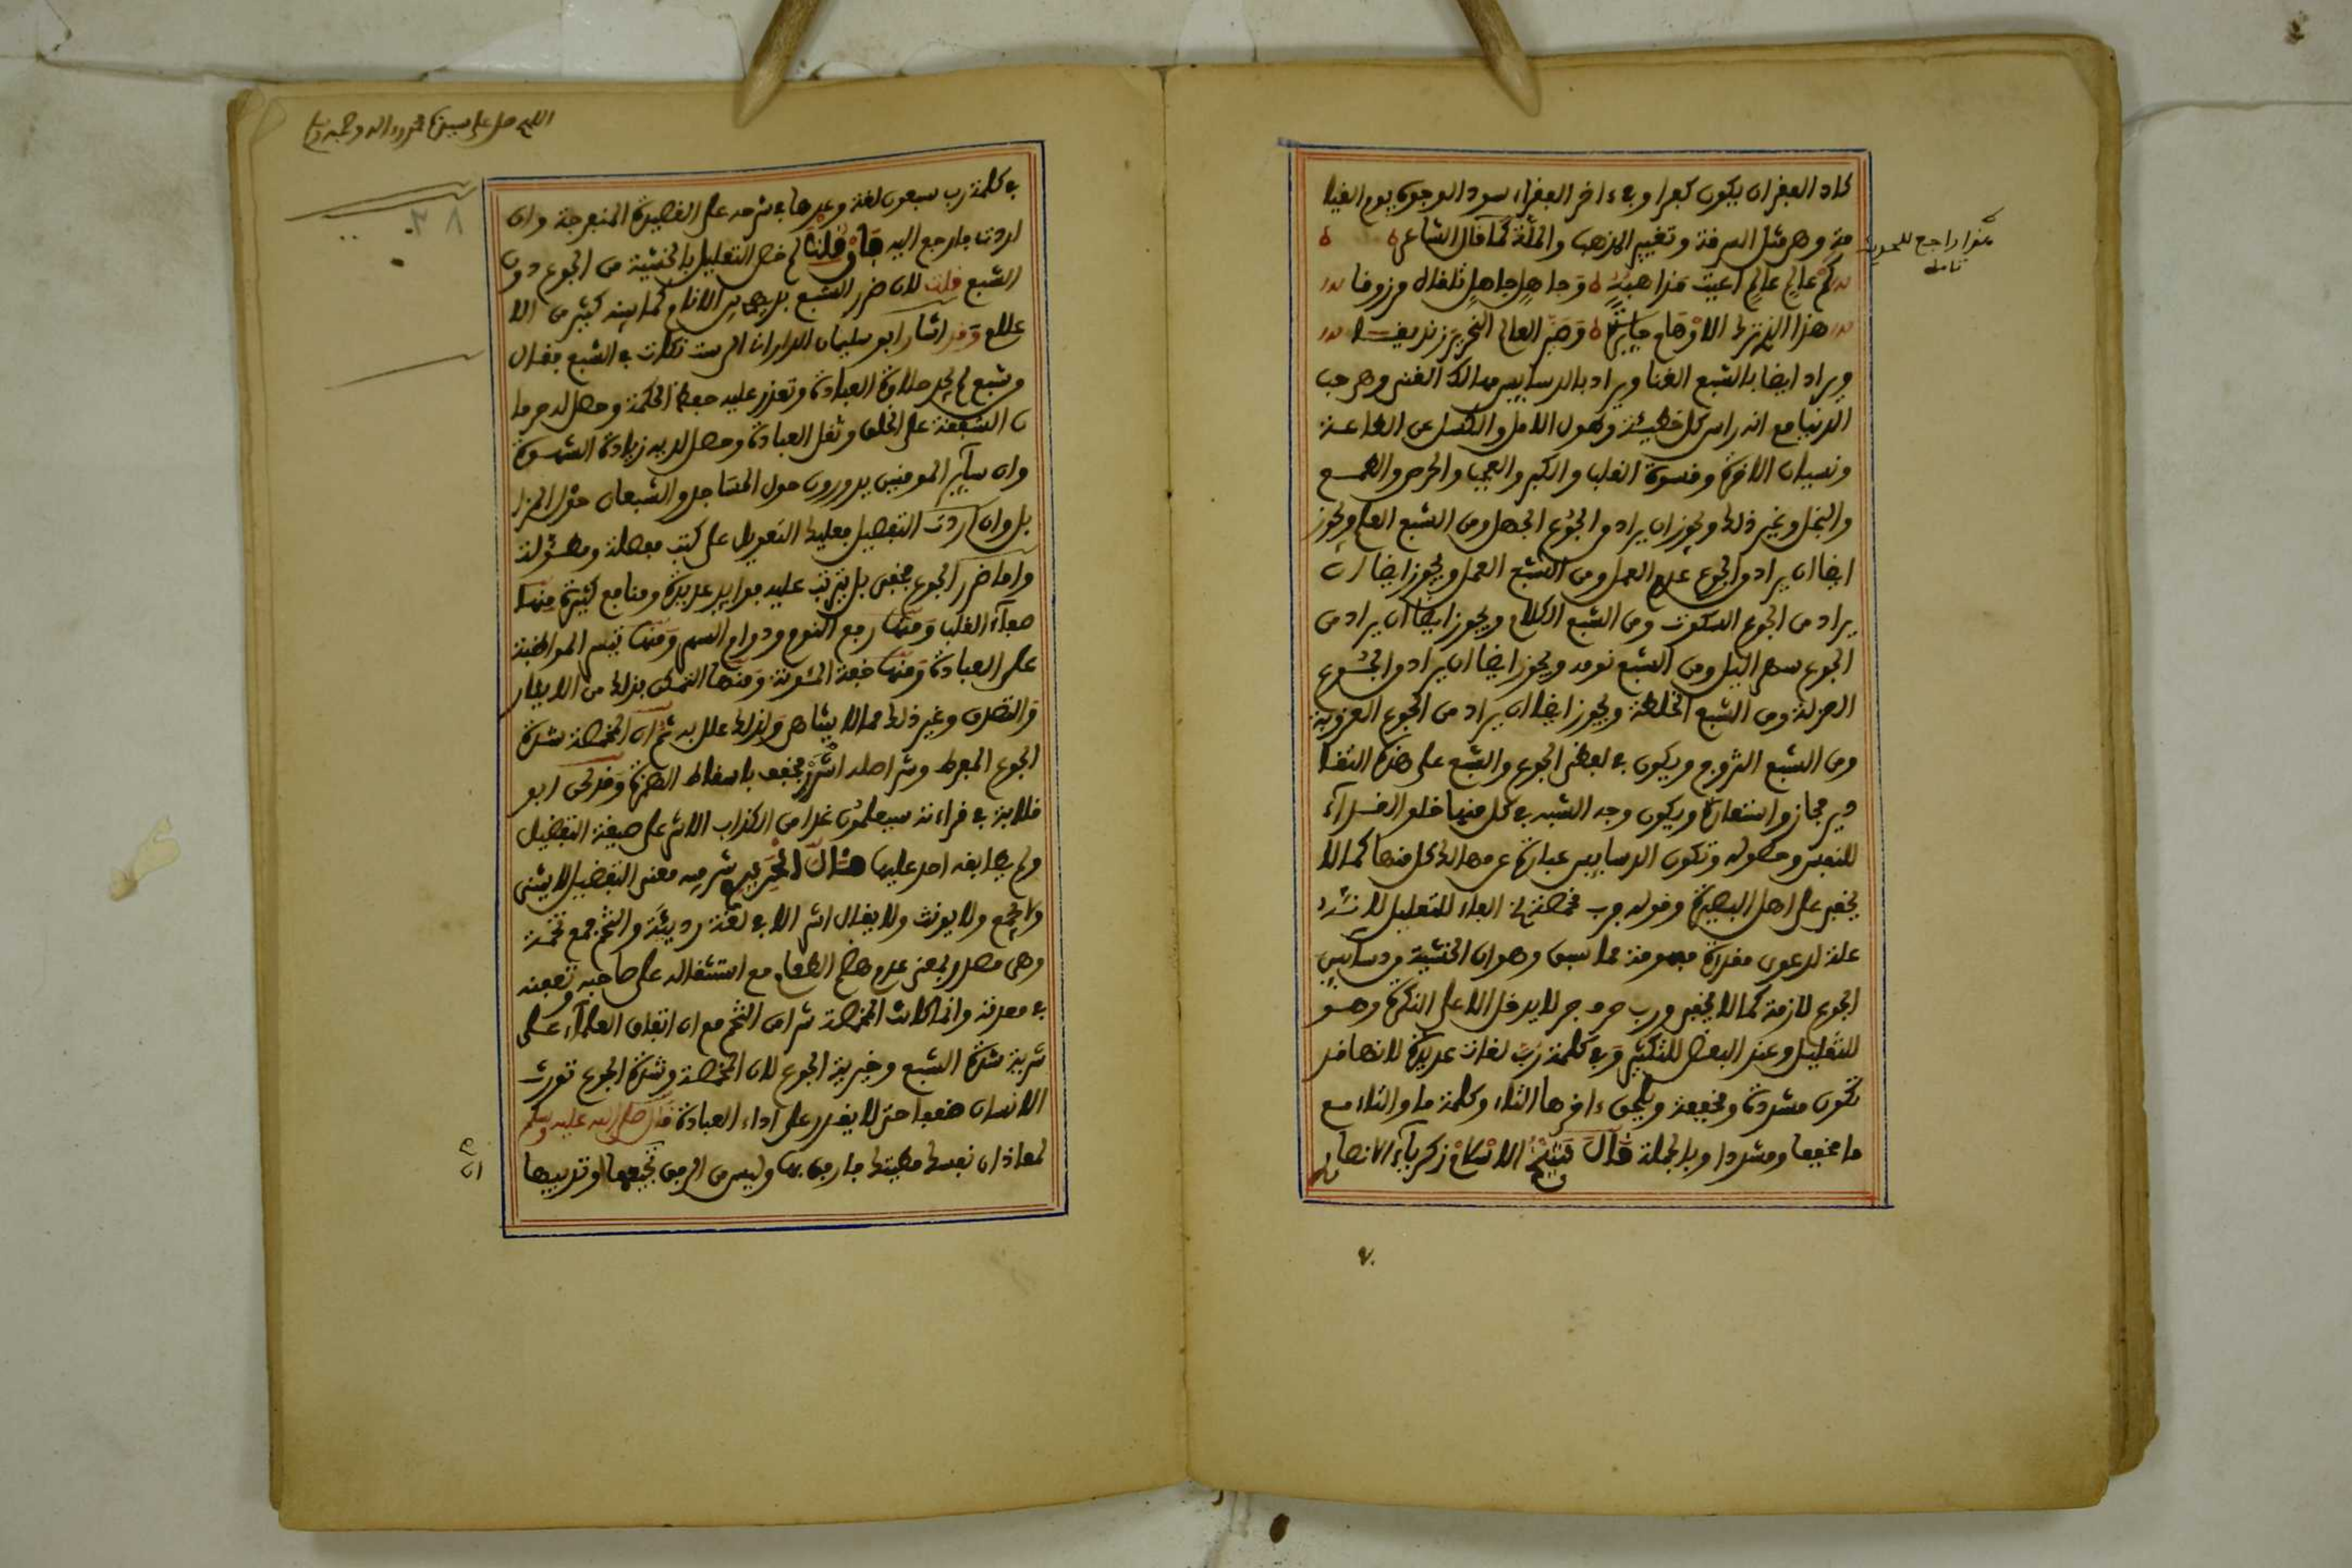 كاد الفقر ان يكون كفرا وفي ءاخر الفقراء سود الوجوه يوم القيا
مة وهو مثل السرفة وتغيير المذهب والملة كما قال الشاعر
كم عالم عالم اعيت مذاهبه وجاهل جاهل تلقاه مرزوقا
هذا الذي ترك الاوهام حايرة وصير العالم النحرير زنديقا
هذا راجع للجوع
تامله
ويراد ايضا بالشبع الغنا ويراد بالدسايس مهالك الغنى وهو حب
الدنيا مع انه راس كل خطيئة وطول الامل والكسل عن الطاعة
ونسيان الاخرة وقسوة القلب والكبر والعجب والحرص والطمع
والبخل وغير ذلك ويجوز ان يراد من الجوع الجهل ومن الشبع العلم ويجوز
ايضا ان يراد من الجوع عدم العمل ومن الشبع العمل ويجوز ايضا ان
يراد من الجوع السكوت ومن الشبع الكلام ويجوز ايضا ان يراد من
الجوع سهر اليل ومن الشبع نومه ويجوز ايضا ان يراد من الجوع
العزلة ومن الشبع الخلطة ويجوز ايضا ان يراد من الجوع العزوبة
ومن الشبع التزوج ويكون في لفظ الجوع والشبع على هذه التقا
دير مجاز واستعارة ويكون وجه الشبه في كل منهما خلو
للنفس وحصوله وتكون الدسايس عبارة عن مهالك كل منهما كما لا
يخفى على اهل البصيرة وقوله فرب مخمصة الخ الفاء للتعليل
علة لدعوى مقدرة مفهومة مما سبق وهو ان الخشية من دسايس
الجوع لازمة كما لا يخفى ورب حرف جر لا يدخل الا على النكرة وهو
للتقليل وعند البعض للتكثير وفي كلمة رب لغات عديدة لانها قد
تكون مشددة ومخففة ويلحق ءاخرها التاء وكلمة ما والتاء مع
ما مخففا ومشددا وبالجملة قال شيخ الاسلام زكرياء الانصاري
اللهم صل على سيدنا محمد وءاله وصحبه وسلم
في كلمة رب سبعون لغة وعدها في شرحه على القصيدة المنفرجة وان
اردت فارجع اليه فان قلت لم خص التعليل بالخشية من الجوع دون
الشبع قلت لان ضرر الشبع بديهي بين الانام كما بينه كثير من الا
علام وقد اشار ابو سليمان الداراني الى ست نكات في الشبع فقال
من شبع لم يجد حلاوة العبادة وتعذر عليه حفظ الحكمة وحصل له حرما
ن الشفقة على الخلق وثقل العبادة وحصل لديه زيادة الشهوة
وان ساير المومنين يدورون حول المساجد والشبعان حول المزا
بل وان اردت التفصيل فعليك التعويل على كتب مفصلة ومطولة
واما ضرر الجوع فخفي بل يترتب عليه فوايد عديدة ومنافع كثيرة منها
صفاء القلب ومنها دفع النوم ودوام السهر ومنها تيسر المواظبة
على العبادة ومنها خفة المئونة ومنها التمكن بذلك من الايثار
والتصدق وغير ذلك مما لا يتناهى ولذلك علل به ثم ان المخمصة شدة
الجوع المفرط وشر اصله اشرر مخفف باسقاط الهمزة وقد حكى ابو
قلابة في قراءته سيعلمون غدا من الكذاب الاشر على صيغة التفضيل
ولم يطابقه احد عليها قال الحريري شر فيه معنى التفضيل لا يثنى
ولا يجمع ولا يونث ولا يقال اشر الا في لغة رديئة والتخم جمع تخمة
وهي مصدر بمعنى عدم هضم الطعام مع استثقاله على صاحبه
في معدته وانما كانت المخمصة شرا من التخم مع ان اتفاق العلماء على
شرية شدة الشبع وخيرية الجوع لان المخمصة وشدة الجوع تورث
الانسان ضعفا حتى لا يقدر على اداء العبادة قال صلى الله عليه وسلم
لمعاذ ان نفسك مطيتك فارفق بها وليس من الرفق تجيعها وتذيبها
ان